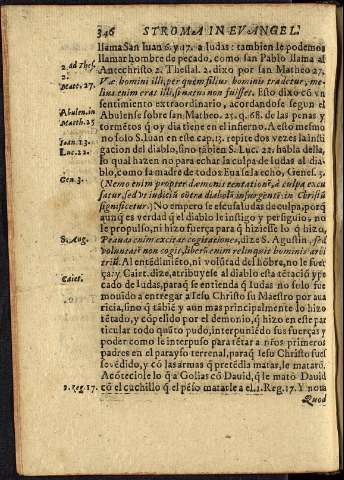 346 STROMA IN EVANGEL.
llama San Iuan 6. y 17. a Iudas: tambien le podemos
2. Ad Thes. 2. llamar hombre de pecado, como san Pablo llama al
Antechristo 2. Thessal. 2. dixo por san Matheo 27.
Matt. 27. Væ homini illi, per quem filius hominis tradetur, me-
lius enim erat illi, si natus non fuisset. Esto dixo cõ vn
sentimiento extraordinario, acordandose segun el
Abulen. in Matth. 25 Abulense sobre san Matheo. 25. q. 68. de las penas y
tormẽtos q̃ oy dia tiene en el infierno. A esto mesmo
Ioan. 13. no solo S. Iuan en este cap. 13. repite dos vezes la insti
Luc. 22. gacion del diablo, sino tãbien S. Luc. 22. habla della,
lo qual hazen no para echar la culpa de Iudas al dia-
blo, como la madre de todos Eua se la echo, Genes. 3.
Gen. 3. (Nemo enim propter dæmonis tentationẽ, à culpa excu
satur, sed vt iudiciũ cõtra diaboli insurgentẽ in Christũ
significetur.) No empero se escusa Iudas de culpa, porq̃
aunq̃ es verdad q̃ el diablo le instigo y persiguio, no
le propulso, ni hizo fuerça para q̃ hiziesse lo q̃ hizo,
S. Aug. Prauas enim excitat cogitationes, dize S. Agustin, sed
voluntatẽ non cogit, liberũ enim relinquit hominis arbi
triũ. Al entẽdimiẽto, ni volũtad del hõbre, no le fuer
Caiet. ça: y Caiet. dize, atribuyese al diablo esta tẽtaciõ y pe
cado de Iudas, paraq̃ se entienda q̃ Iudas no solo fue
mouido a entregar a Iesu Christo su Maestro por aua
ricia, sino q̃ tãbiẽ y aun mas principalmente lo hizo
tẽtado, y cõpelido por el demonio, q̃ hizo en este par
ticular todo quãto pudo, interpuniẽdo sus fuerças y
poder como le interpuso para tẽtar a nr̃os primeros
padres en el parayso terrenal, paraq̃ Iesu Christo fues
se vẽdido, y cõ las armas q̃ pretẽdia matar, le mataro͂.
Acõteciole lo q̃ a Golias cõ Dauid, q̃ le matò Dauid
1. Reg. 17. cõ el cuchillo q̃ el pẽso matarle a el. 1. Reg. 17. Y nota
Quod